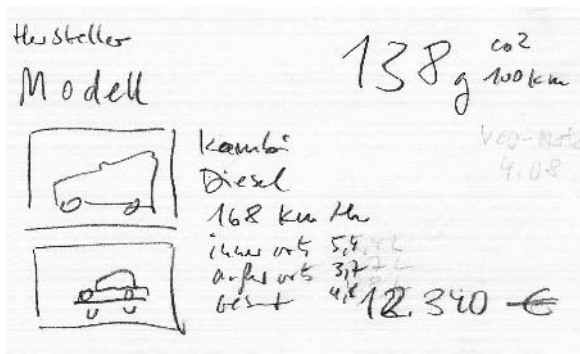 Hersteller
Modell
138 g co2
100 km
VCO-Note
4.08
Kombi
Diesel
168 km/h
innerorts 5,4
außerorts 3,7
gesamt 4,8
12.340 €